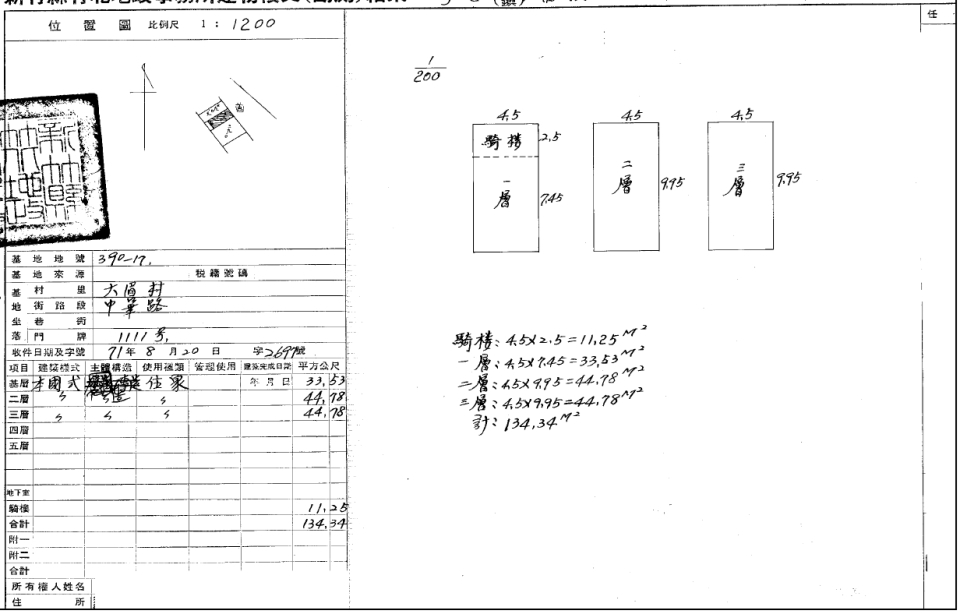 位置圖 比例尺 1：1200
任
1/200
4.5
騎樓
2.5
一層
7.45
4.5
二層
9.95
4.5
三層
9.95
基地地號 390-17.
基地來源 稅籍號碼
基地坐落 村里 大眉村
街路段 中華路
巷街
門牌 1111號.
收件日期及字號 71年8月20日 字2697號
項目 建築樣式 主體構造 使用種類 管理使用 建築完成日期 平方公尺
基層 本國式 住家 年月日 33.53
二層 〃 〃 〃 44.78
三層 〃 〃 〃 44.78
四層
五層
地下室
騎樓 11.25
合計 134.34
附一
附二
合計
所有權人姓名
住所
騎樓：4.5×2.5=11.25M²
一層：4.5×7.45=33.53M²
二層：4.5×9.95=44.78M²
三層：4.5×9.95=44.78M²
計：134.34M²